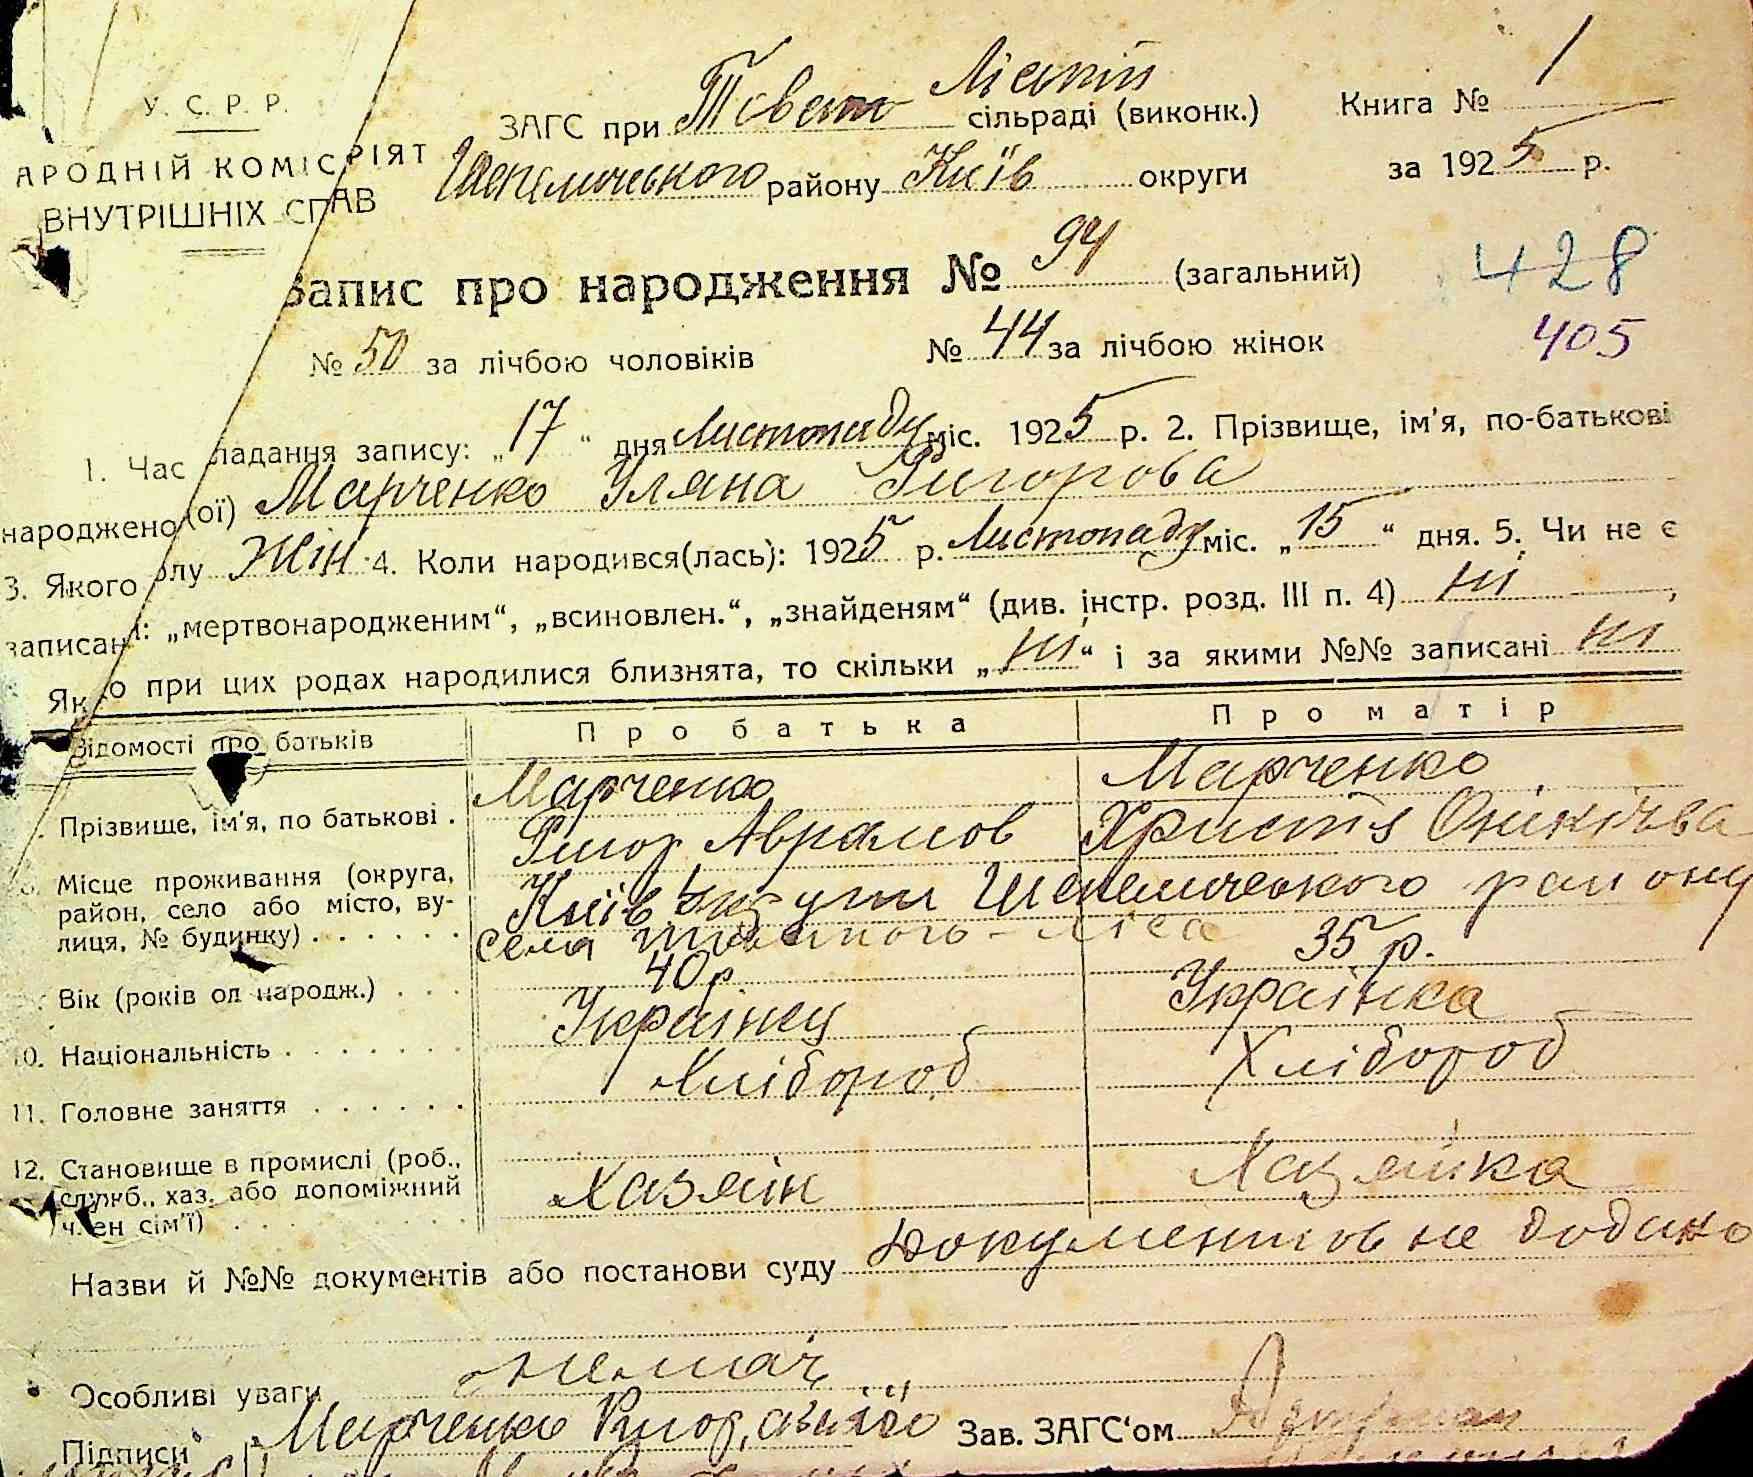 У. С. Р. Р.
АРОДНІЙ КОМІСРІЯТ
ВНУТРІШНІХ СПАВ
ЗАГС при Товсто Ліскій сільраді (виконк.) Книга № 1
району Київ округи за 1925 р.
Запис про народження № 94 (загальний)
428
№ 50 за лічбою чоловіків № 44 за лічбою жінок
405
1. Час ладання запису: „17“ дня Листопаду міс. 1925 р. 2. Прізвище, ім'я, по-батькові
народжено(ої) Марченко Уляна Григорова
3. Якого олу Жін. 4. Коли народився(лась): 1925 р. Листопаду міс. „15“ дня. 5. Чи не є
записані: „мертвонародженим“, „всиновлен.“, „знайденям“ (див. інстр. розд. III п. 4) ні,
Якo при цих родах народилися близнята, то скільки „ні“ і за якими №№ записані ні
Відомості про батьків Про батька Про матір
Прізвище, ім'я, по батькові . Марченко Марченко
Григор Аврамов Христя
Місце проживання (округа, район, село або місто, вулиця, № будинку) . . . . . . Київ округи району
села ліса
Вік (років од народж.) . . . 40 р. 35 р.
10. Національність . . . . . . . Українец Українка
11. Головне заняття . . . . . . Хлібороб Хлібороб
12. Становище в промислі (роб., служб., хаз. або допоміжний член сім'ї) . . . . . . . . . Хазяїн Хазяйка
Назви й №№ документів або постанови суду Документов не додано
Особливі уваги немає
Підписи Марченко Григор, Зав. ЗАГС'ом